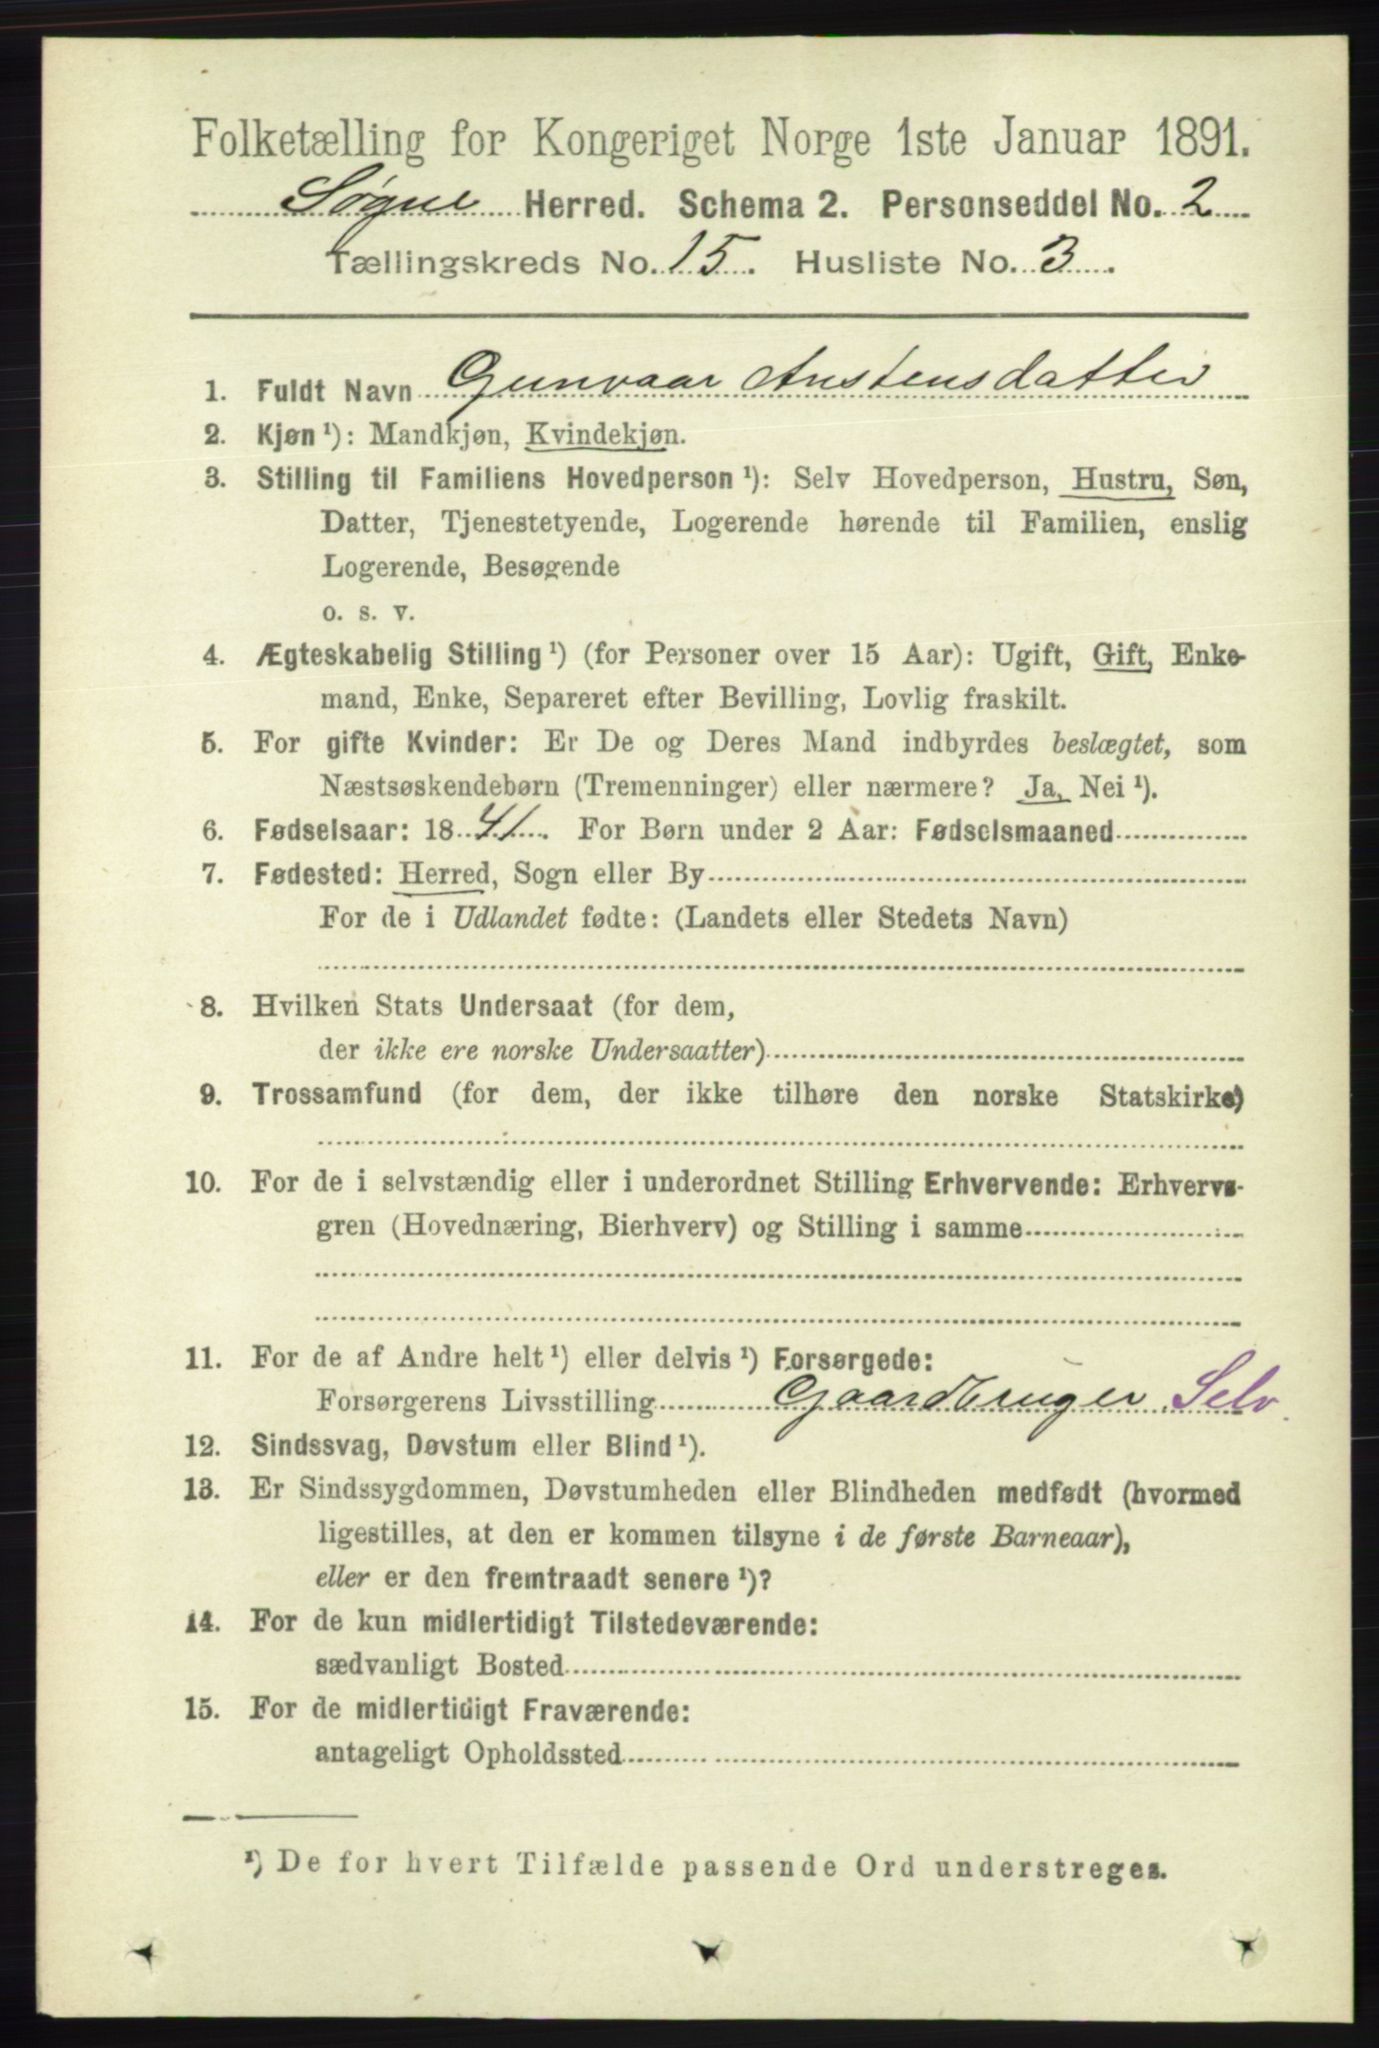 Folketælling for Kongeriget Norge 1ste Januar 1891.
Søgne Herred. Schema 2. Personseddel No. 2
Tællingskreds No. 15. Husliste No. 3.
1. Fuldt Navn Gunvaar Anstensdatter
2. Kjøn ¹): Mandkjøn, Kvindekjøn.
3. Stilling til Familiens Hovedperson ¹): Selv Hovedperson, Hustru, Søn,
Datter, Tjenestetyende, Logerende hørende til Familien, enslig
Logerende, Besøgende
o. s. v.
4. Ægteskabelig Stilling ¹) (for Personer over 15 Aar): Ugift, Gift, Enke-
mand, Enke, Separeret efter Bevilling, Lovlig fraskilt.
5. For gifte Kvinder: Er De og Deres Mand indbyrdes beslægtet, som
Næstsøskendebørn (Tremenninger) eller nærmere? Ja, Nei ¹).
6. Fødselsaar: 1841. For Børn under 2 Aar: Fødselsmaaned
7. Fødested: Herred, Sogn eller By
For de i Udlandet fødte: (Landets eller Stedets Navn)
8. Hvilken Stats Undersaat (for dem,
der ikke ere norske Undersaatter)
9. Trossamfund (for dem, der ikke tilhøre den norske Statskirke)
10. For de i selvstændig eller i underordnet Stilling Erhvervende: Erhvervs-
gren (Hovednæring, Bierhverv) og Stilling i samme
11. For de af Andre helt ¹) eller delvis ¹) Forsørgede:
Forsørgerens Livsstilling Gaardbruger Selv.
12. Sindssvag, Døvstum eller Blind ¹).
13. Er Sindssygdommen, Døvstumheden eller Blindheden medfødt (hvormed
ligestilles, at den er kommen tilsyne i de første Barneaar),
eller er den fremtraadt senere ¹)?
14. For de kun midlertidigt Tilstedeværende:
sædvanligt Bosted
15. For de midlertidigt Fraværende:
antageligt Opholdssted
¹) De for hvert Tilfælde passende Ord understreges.